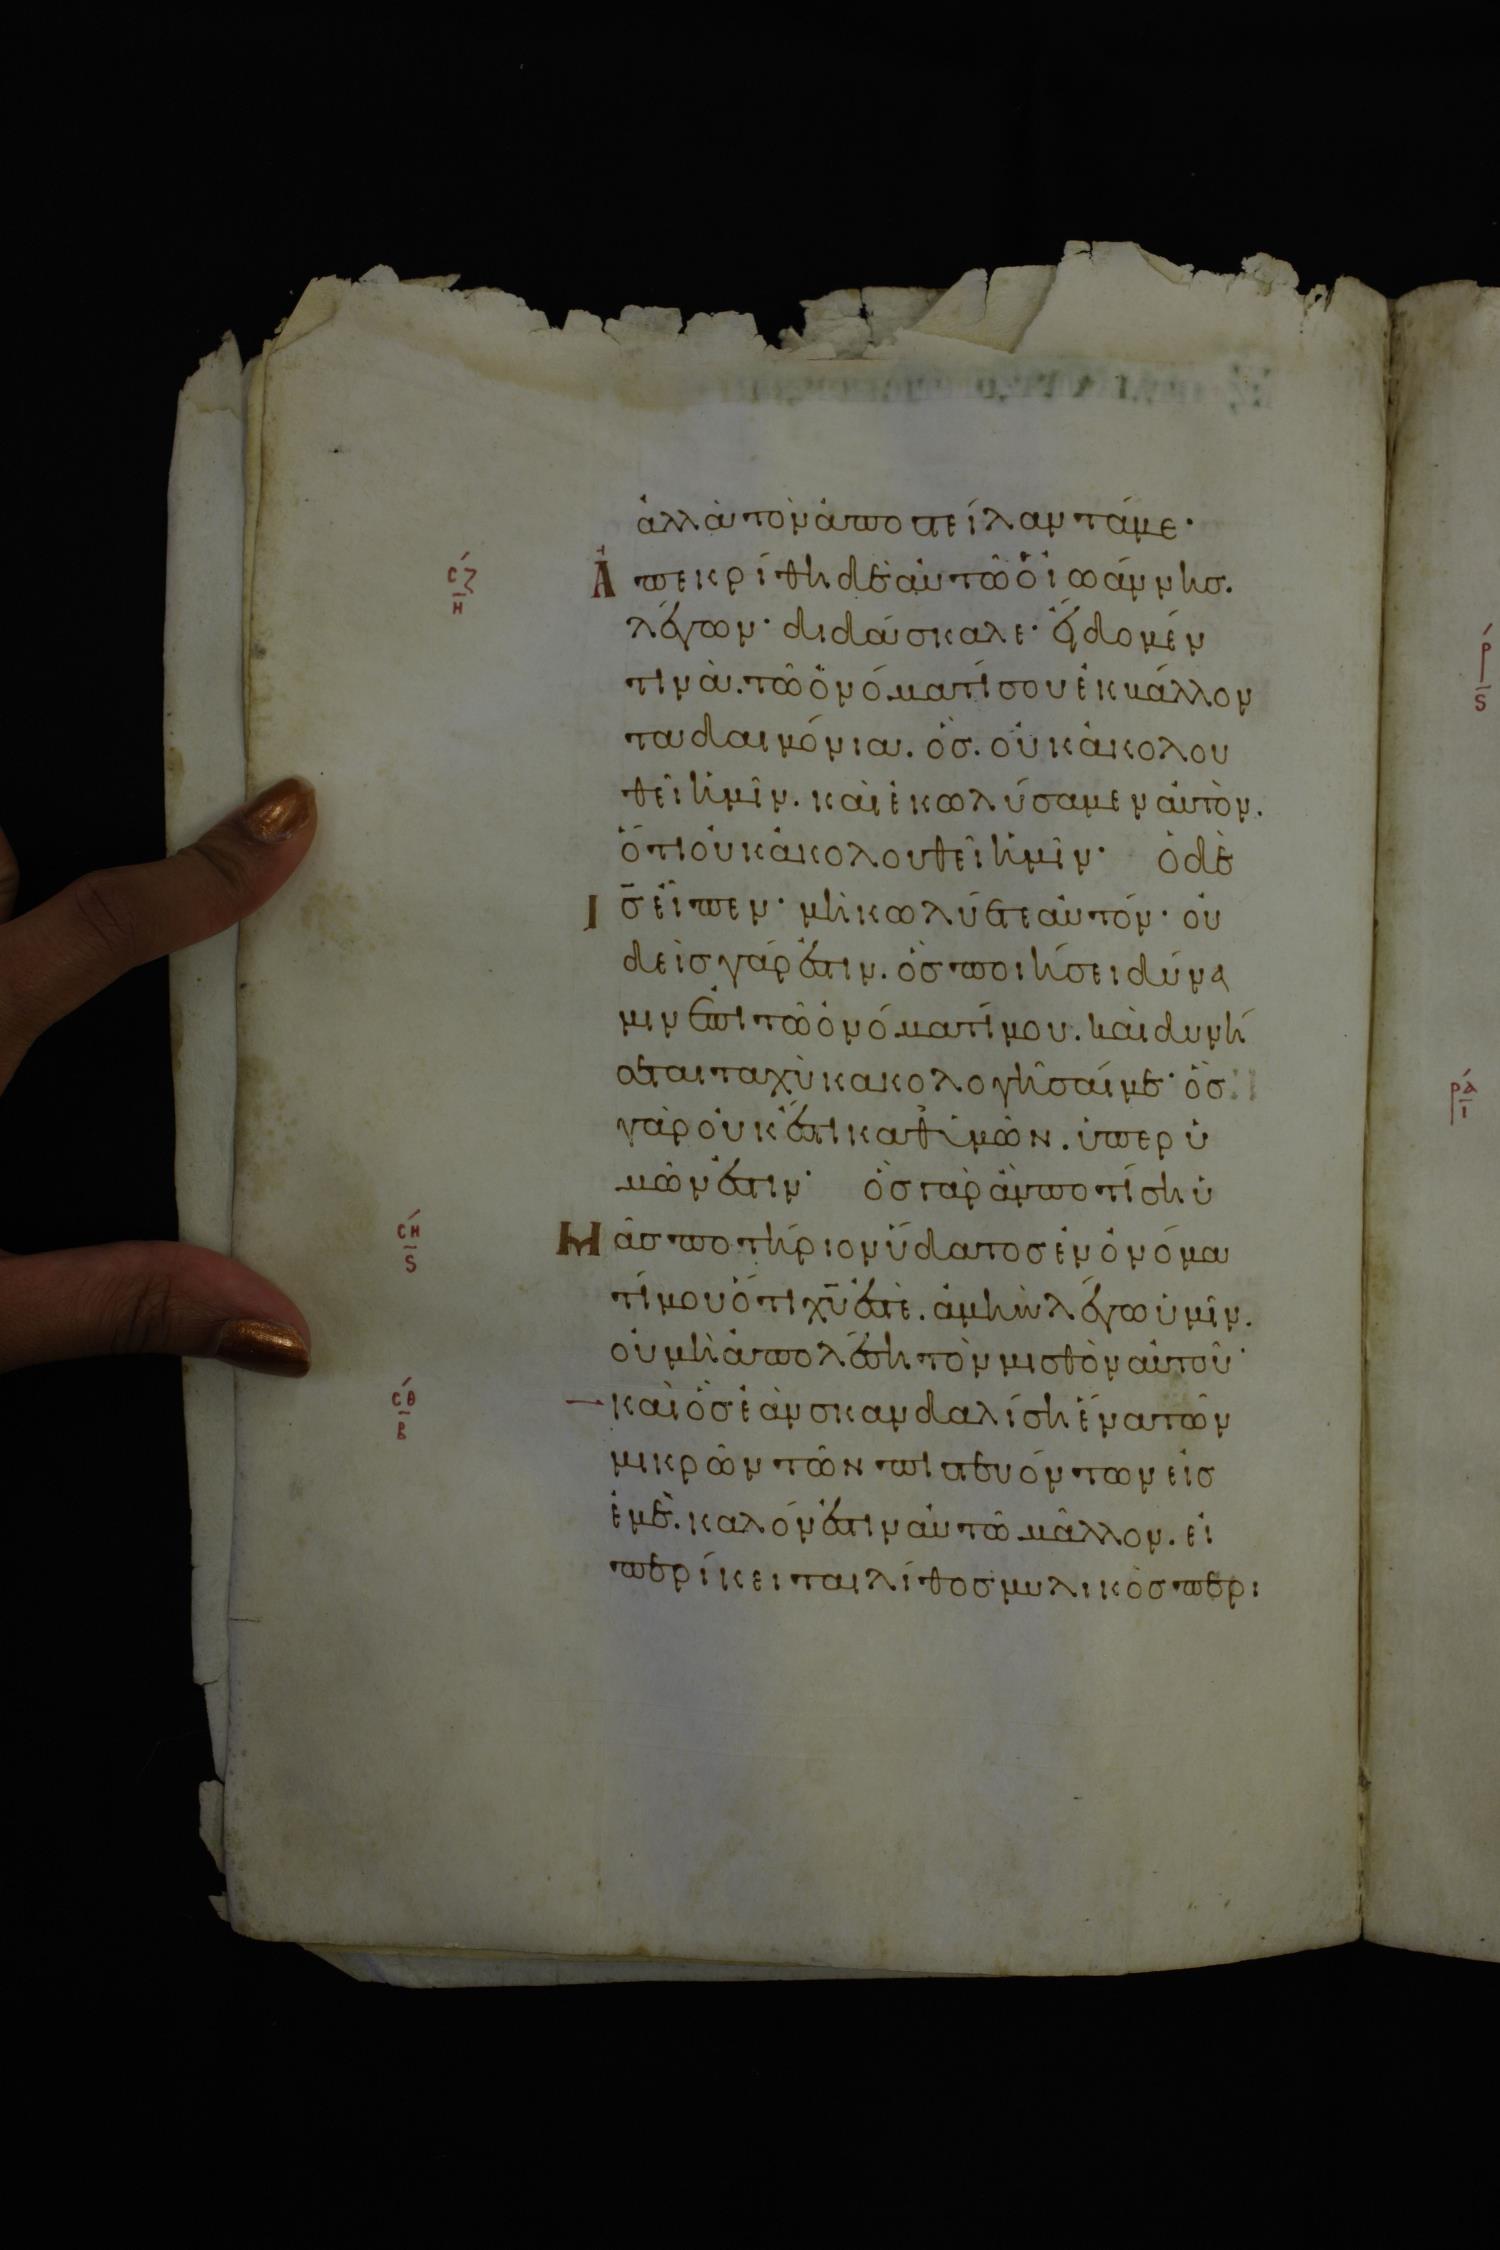 ἀλλὰ τὸν ἀποστείλαντά με·
Ἀπεκρίθη δὲ αὐτῶ ὁ ἰωάννησ.
λέγων· διδάσκαλε· εἴδομέν
τινὰ. τῶ ὀνόματί σου ἐκβάλλον
τα δαιμόνια. ὃσ. οὐκ ἀκολου
θεῖ ἡμῖν. καὶ ἐκωλύσαμεν αὐτὸν.
ὅτι οὐκ ἀκολουθεῖ ἡμῖν· ὁ δὲ
Ισ̅ εἶπεν· μὴ κωλύετε αὐτόν· οὐ
δεὶσ γάρ ἐστιν. ὃσ ποιήσει δύνα
μιν ἐπὶ τῶ ὀνόματί μου. καὶ δυνή
σεται ταχὺ κακολογῆσαί με· ὃσ
γὰρ οὐκ ἔστι καθ ὑμῶν. ὑπερ ὑ
μῶν ἐστιν· ὃσ γὰρ ἂν ποτίση ὑ
Μᾶσ ποτήριον ὕδατοσ ἐν ὀνόμα
τί μου ὅτι χυ̅ ἐστὲ. ἀμὴν λέγω ὑμῖν.
οὐ μὴ ἀπολέση τὸν μισθὸν αὐτοῦ·
καὶ ὃσ ἐὰν σκανδαλίση ἕνα τῶν
μικρῶν τῶν πιστευόντων εἰσ
ἐμὲ. καλόν ἐστιν αὐτῶ μᾶλλον. εἰ
περίκειται λίθοσ μυλικὸσ περι
σζ
η
ση
ς
σθ
β
ρ
ς
ρα
ι